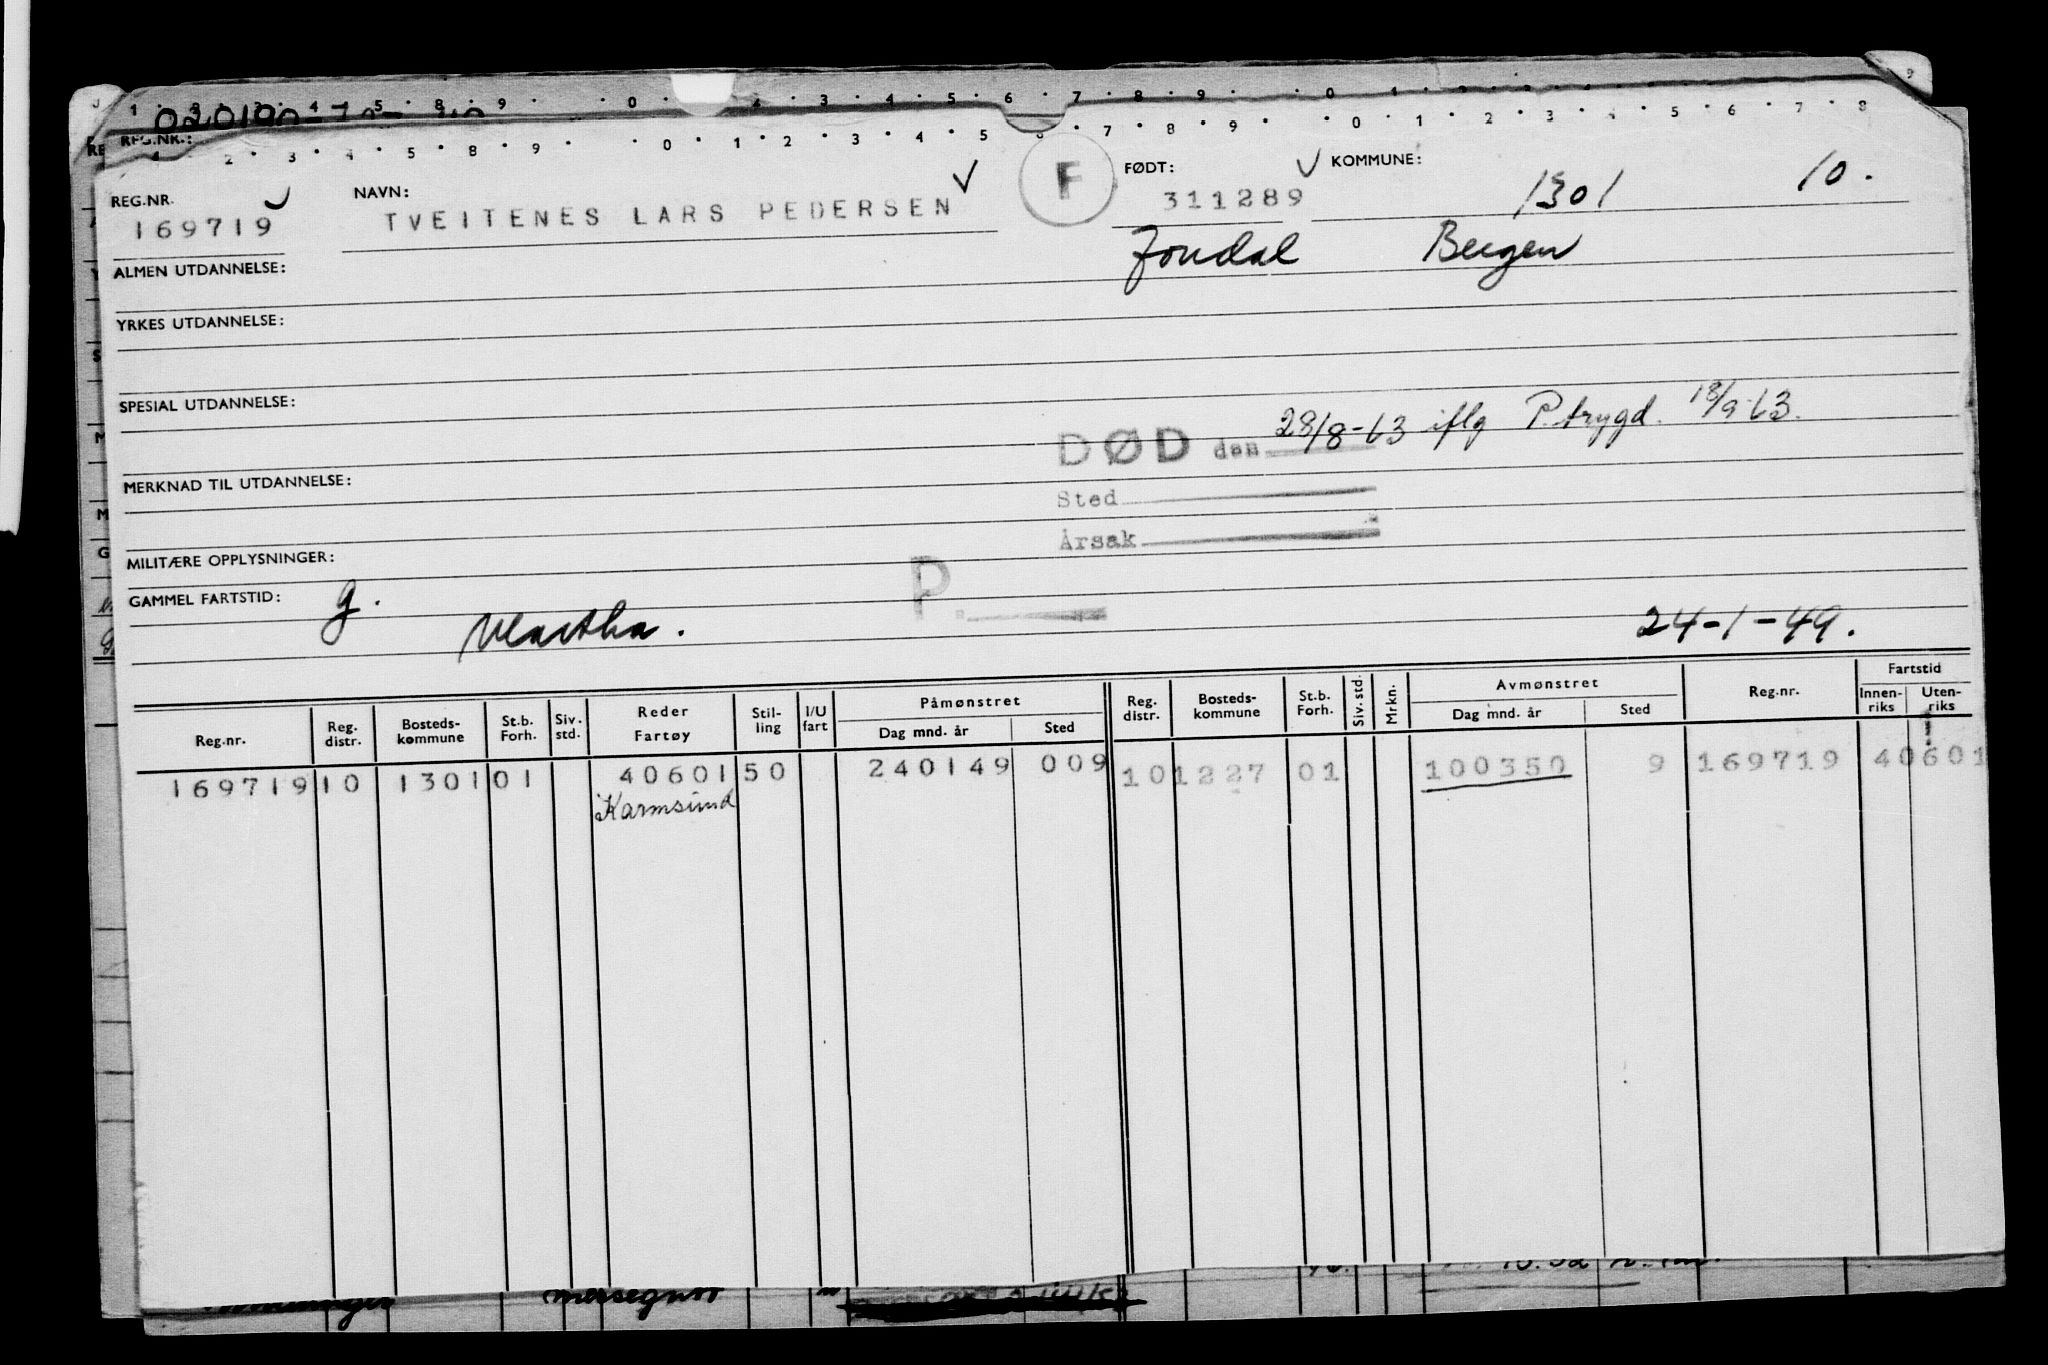 REG.NR. NAVN: FØDT: KOMMUNE:
169719 TVEITENES LARS PEDERSEN F 311289 1301 10.
Jondal Bergen
ALMEN UTDANNELSE:
YRKES UTDANNELSE:
SPESIAL UTDANNELSE:
DØD den 28/8-63 iflg P.trygd. 18/9-63.
MERKNAD TIL UTDANNELSE:
Sted
Årsak
MILITÆRE OPPLYSNINGER:
P.
GAMMEL FARTSTID: g.
Martha. 24-1-49.
Reg.nr. Reg. distr. Bosteds-kommune St.b. Forh. Siv. std. Reder Fartøy Stil-ling I/U fart Påmønstret Dag mnd. år Sted Reg. distr. Bosteds-kommune St.b. Forh. Siv. std. Mrkn. Avmønstret Dag mnd. år Sted Reg.nr. Fartstid Innen-riks Uten-riks
169719 10 1301 01 40601 50 240149 009 10 1227 01 100350 9 169719 40601
Karmsund